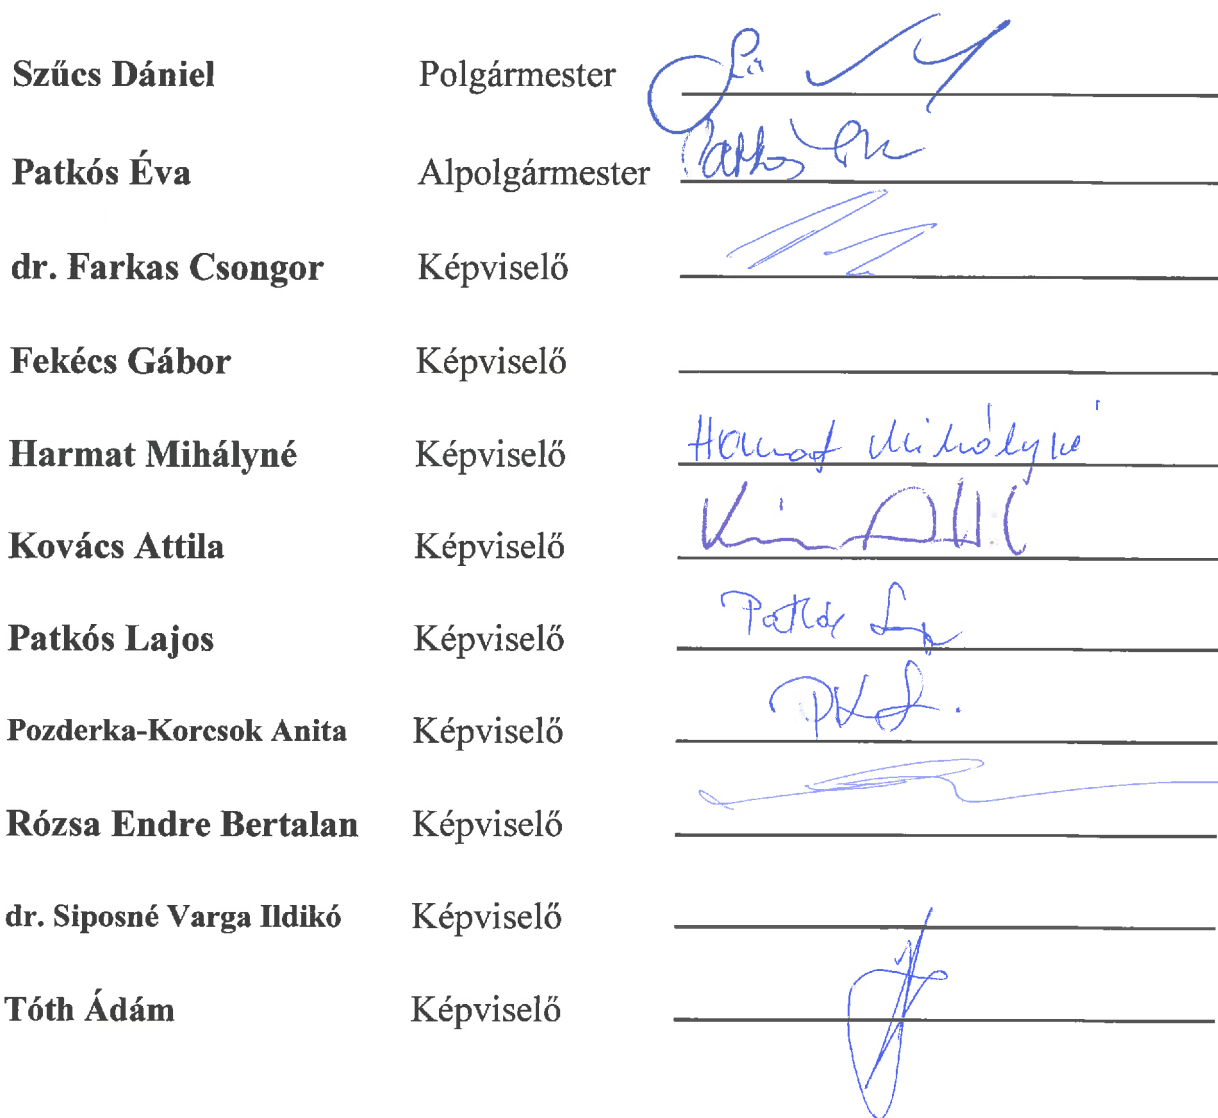 Szűcs Dániel Polgármester
Patkós Éva Alpolgármester Patkós
dr. Farkas Csongor Képviselő
Fekécs Gábor Képviselő
Harmat Mihályné Képviselő Harmat Mihályné
Kovács Attila Képviselő
Patkós Lajos Képviselő Patkós
Pozderka-Korcsok Anita Képviselő
Rózsa Endre Bertalan Képviselő
dr. Siposné Varga Ildikó Képviselő
Tóth Ádám Képviselő